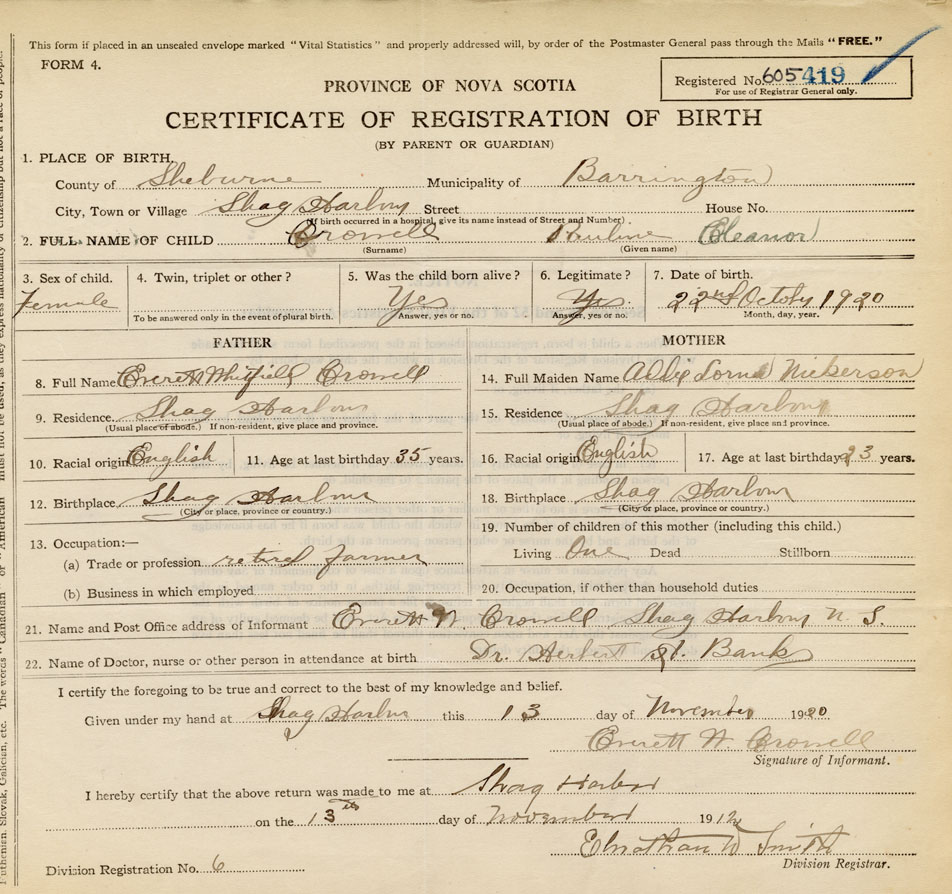 This form if placed in an unsealed envelope marked "Vital Statistics" and properly addressed will, by order of the Postmaster General pass through the Mails "FREE."
FORM 4.
Registered No. 605419
For use of Registrar General only.
PROVINCE OF NOVA SCOTIA
CERTIFICATE OF REGISTRATION OF BIRTH
(BY PARENT OR GUARDIAN)
1. PLACE OF BIRTH.
County of Sheburne Municipality of Barrington
City, Town or Village Shag Harbour Street House No.
(If birth occurred in a hospital, give its name instead of Street and Number)
2. FULL NAME OF CHILD Crowell Pauline Eleanor
(Surname) (Given name)
3. Sex of child. 4. Twin, triplet or other? 5. Was the child born alive? 6. Legitimate? 7. Date of birth.
Female Yes Yes 22nd October 1920
To be answered only in the event of plural birth. Answer, yes or no. Answer, yes or no. Month, day, year.
FATHER MOTHER
8. Full Name Everett Whitfield Crowell 14. Full Maiden Name Lorna Nickerson
9. Residence Shag Harbour 15. Residence Shag Harbour
(Usual place of abode.) If non-resident, give place and province. (Usual place of abode.) If non-resident, give place and province.
10. Racial origin English 11. Age at last birthday 35 years. 16. Racial origin English 17. Age at last birthday 23 years.
12. Birthplace Shag Harbour 18. Birthplace Shag Harbour
(City or place, province or country.) (City or place, province or country.)
19. Number of children of this mother (including this child.)
13. Occupation:—
Living One Dead Stillborn
(a) Trade or profession retired farmer
(b) Business in which employed 20. Occupation, if other than household duties
21. Name and Post Office address of Informant Everett W. Crowell Shag Harbour N. S.
22. Name of Doctor, nurse or other person in attendance at birth Dr. Herbert H. Banks
I certify the foregoing to be true and correct to the best of my knowledge and belief.
Given under my hand at Shag Harbor this 13 day of November 1920
Everett W Crowell
Signature of Informant.
I hereby certify that the above return was made to me at Shag Harbor
on the 13th day of November 191
Elnathan W Smith
Division Registrar.
Division Registration No. 6